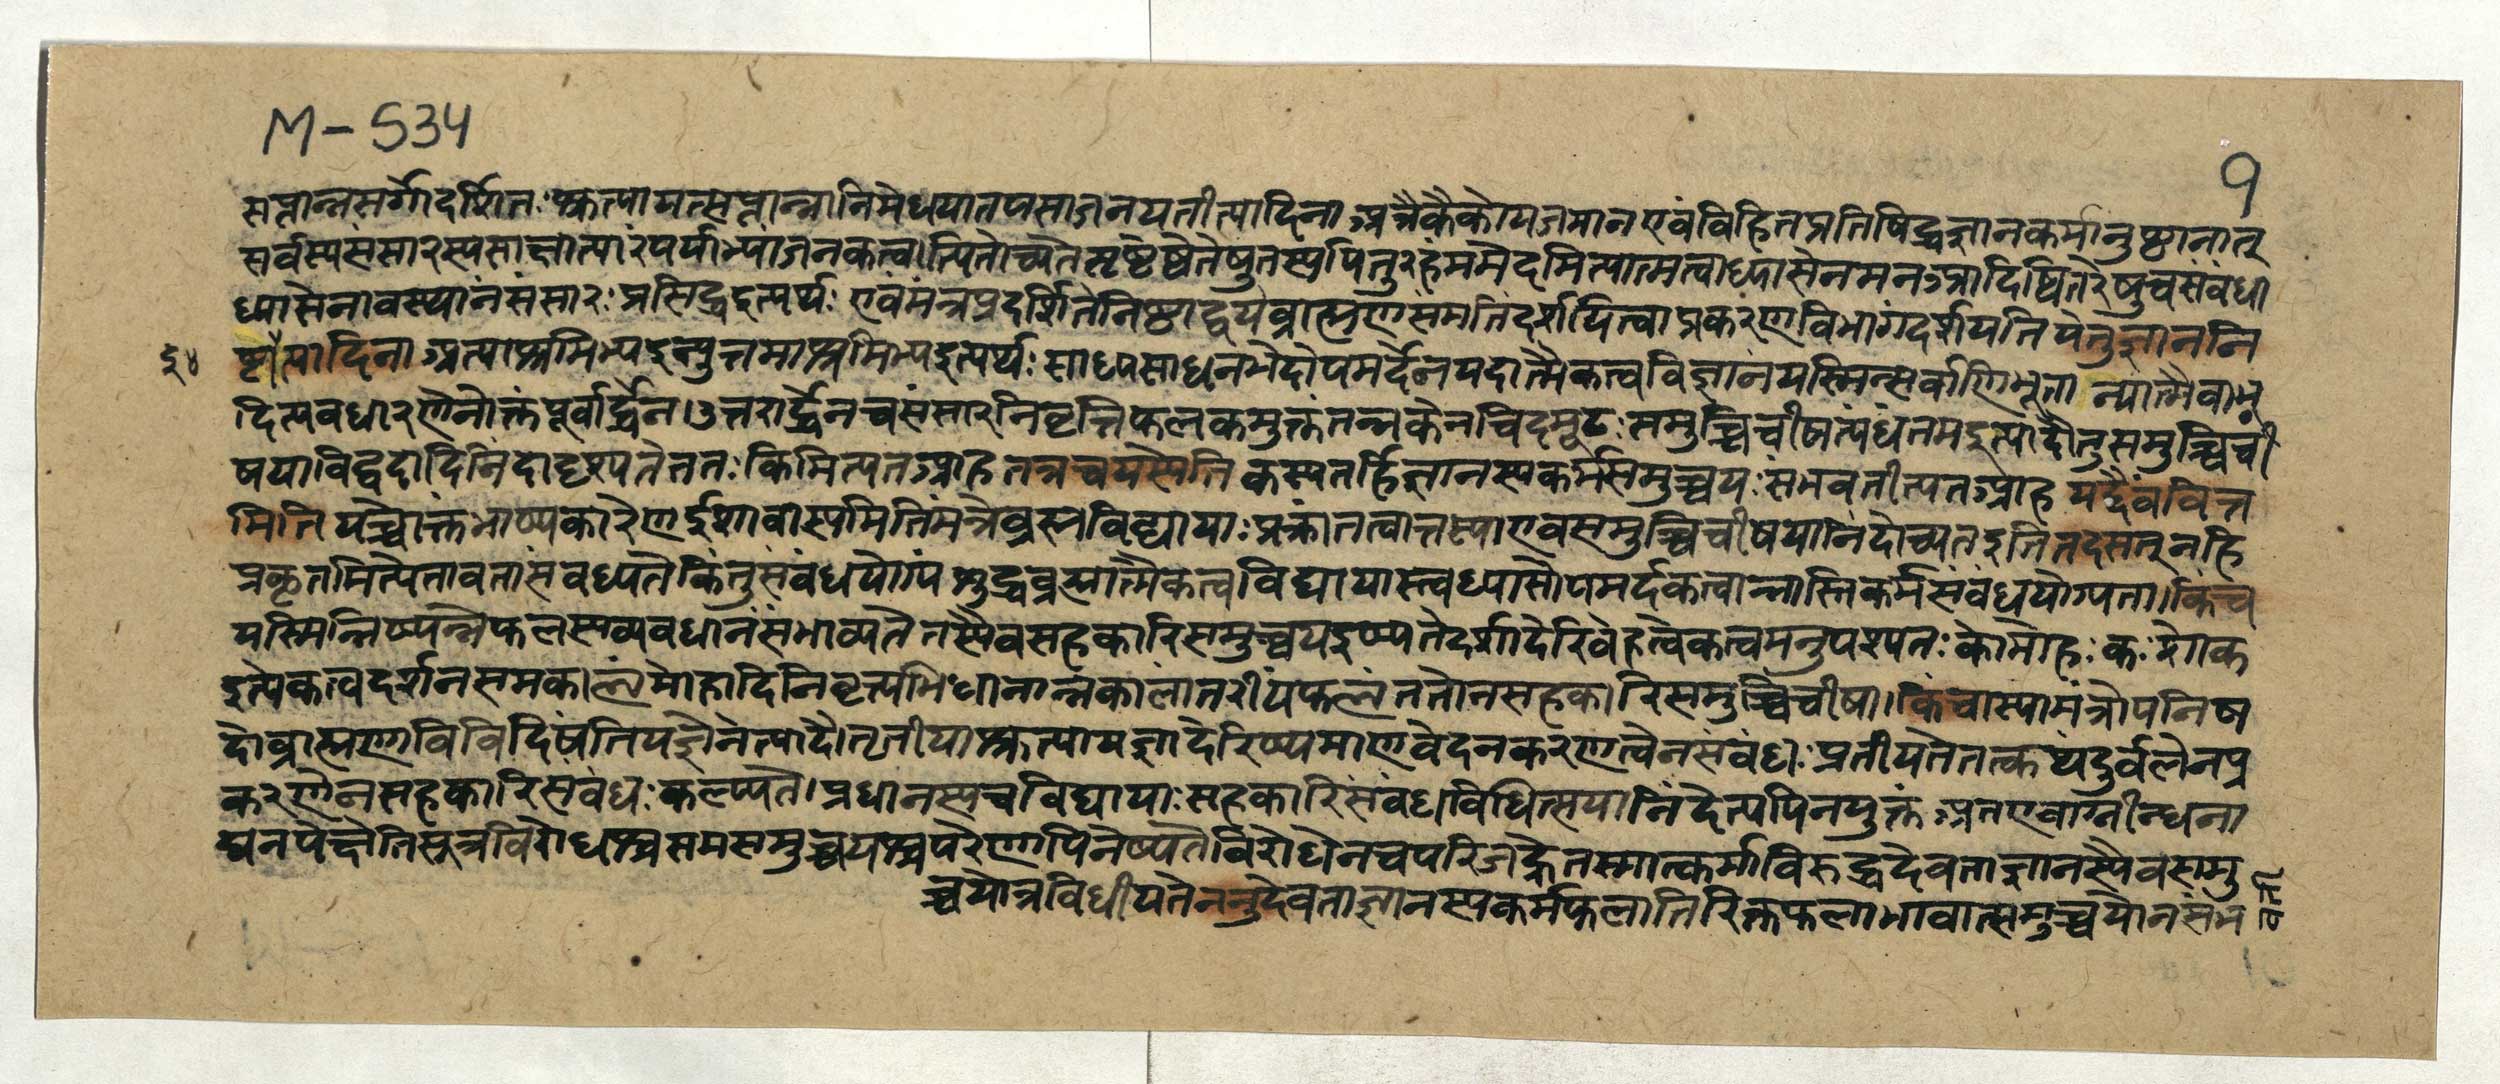 M-534
९
सप्तान्नसर्गोदर्शितः श्रुत्यायत्सप्तान्नानिमेधयातपसाजनयतीत्यादिना अत्रैकैकोयजमान एवंविहितप्रतिषिद्धज्ञानकर्मानुष्ठानात्
सर्वस्यसंसारस्यसाक्षात्पारंपर्याभ्यांजनकत्वात्पितोच्यते सृष्टेष्वेतेषुतस्यपितुरहंममेदमित्यात्मत्वाध्यासेनमन आदिष्वितरेषुचसंबंधा
ध्यासेनावस्थानंसंसारः प्रसिद्धइत्यर्थः एवंमंत्रप्रदर्शितेनिष्ठाद्वयेब्राह्मणसंमतिंदर्शयित्वाप्रकरणविभागंदर्शयति येतुज्ञाननि
ष्ठेत्यादिना अत्याश्रमिभ्यइत्युत्तमाश्रमिभ्यइत्यर्थः साध्यसाधनभेदोपमर्देनयदात्मैकत्वविज्ञानंयस्मिन्सर्वाणिभूता न्यात्मैवाभू
दित्यवधारणेनोक्तंपूर्वार्द्धेन। उत्तरार्द्धेनचसंसारनिवृत्तिफलकमुक्तंतन्नकेनचिदमूढः समुच्चिचीषत्यंधंतमइत्यादौतुसमुच्चिची
षयाविद्वदादिनिंदादृश्यतेततः किमित्यत आह तत्रचयस्येति कस्यतर्हिज्ञानस्यकर्मसमुच्चयः संभवतीत्यत आह यद्दैवंवित्त
मिति यच्चोक्तंभाष्यकारेणईशावास्यमितिमंत्रेब्रह्मविद्यायाः प्रक्रांतत्वात्तस्याएवसमुच्चिचीषयानिंदोच्यतइतितदसत्नहि
प्रकृतमित्येतावतासंबध्यतेकिंतुसंबंधयोग्यंशुद्धब्रह्मात्मैकत्वविद्यायास्त्वध्यासोपमर्दकत्वान्नास्तिकर्मसंबंधयोग्यता। किंच
यस्मिन्निष्पन्नेफलस्यव्यवधानंसंभाव्यतेतस्यैवसहकारिसमुच्चयइष्यतेदर्शादेरिवेहत्वेकत्वमनुपश्यतः कोमोहः कः शोक
इत्येकत्वदर्शनसमकालंमोहादिनिवृत्त्यभिधानान्नकालांतरीयंफलंततोनसहकारिसमुच्चिचीषा। किंचास्यामंत्रोपनिष
दोब्राह्मणेविविदिषंतियज्ञेनेत्यादौतृतीयाश्रुत्यायज्ञादेरिष्यमाणवेदनकरणत्वेनसंबंधः प्रतीयतेतत्कथंदुर्बलेनप्र
करणेनसहकारिसंबंधः कल्प्यते। प्रधानस्यचविद्यायाः सहकारिसंबंधविधित्सयानिंदेत्यपिनयुक्तं अतएवाग्नीन्धना
द्यनपेक्षेतिसूत्रविरोधश्च समसमुच्चयश्चपरेणापिनेष्यतेविरोधेनचपरिजह्रेतस्मात्कर्माविरुद्धदेवताज्ञानस्यैवसमु
च्चयोत्रविधीयतेननुदेवताज्ञानस्यकर्मफलातिरिक्तफलाभावात्समुच्चयोनसंभ